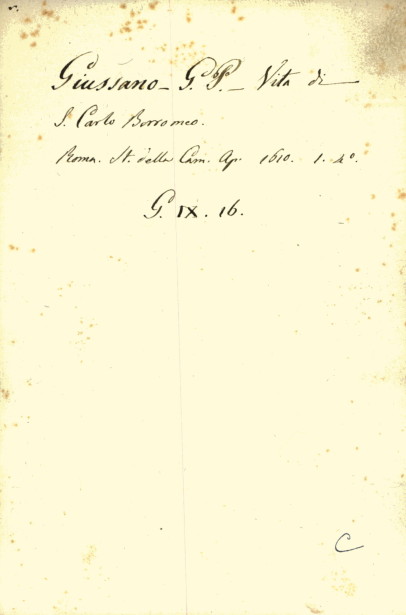 Giussano - G. P. - Vita di
S. Carlo Borromeo.
Roma. St. della Cam. Ap. 1610. 1. 4º.
G. IX. 16.
C